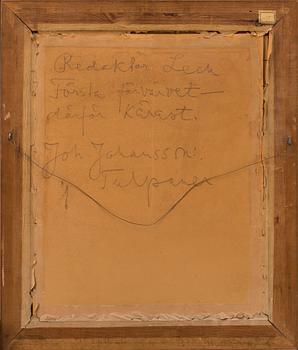 Redaktör Leck
Första förvärvet –
därför Kärast.
Joh. Johansson:
Tulpaner